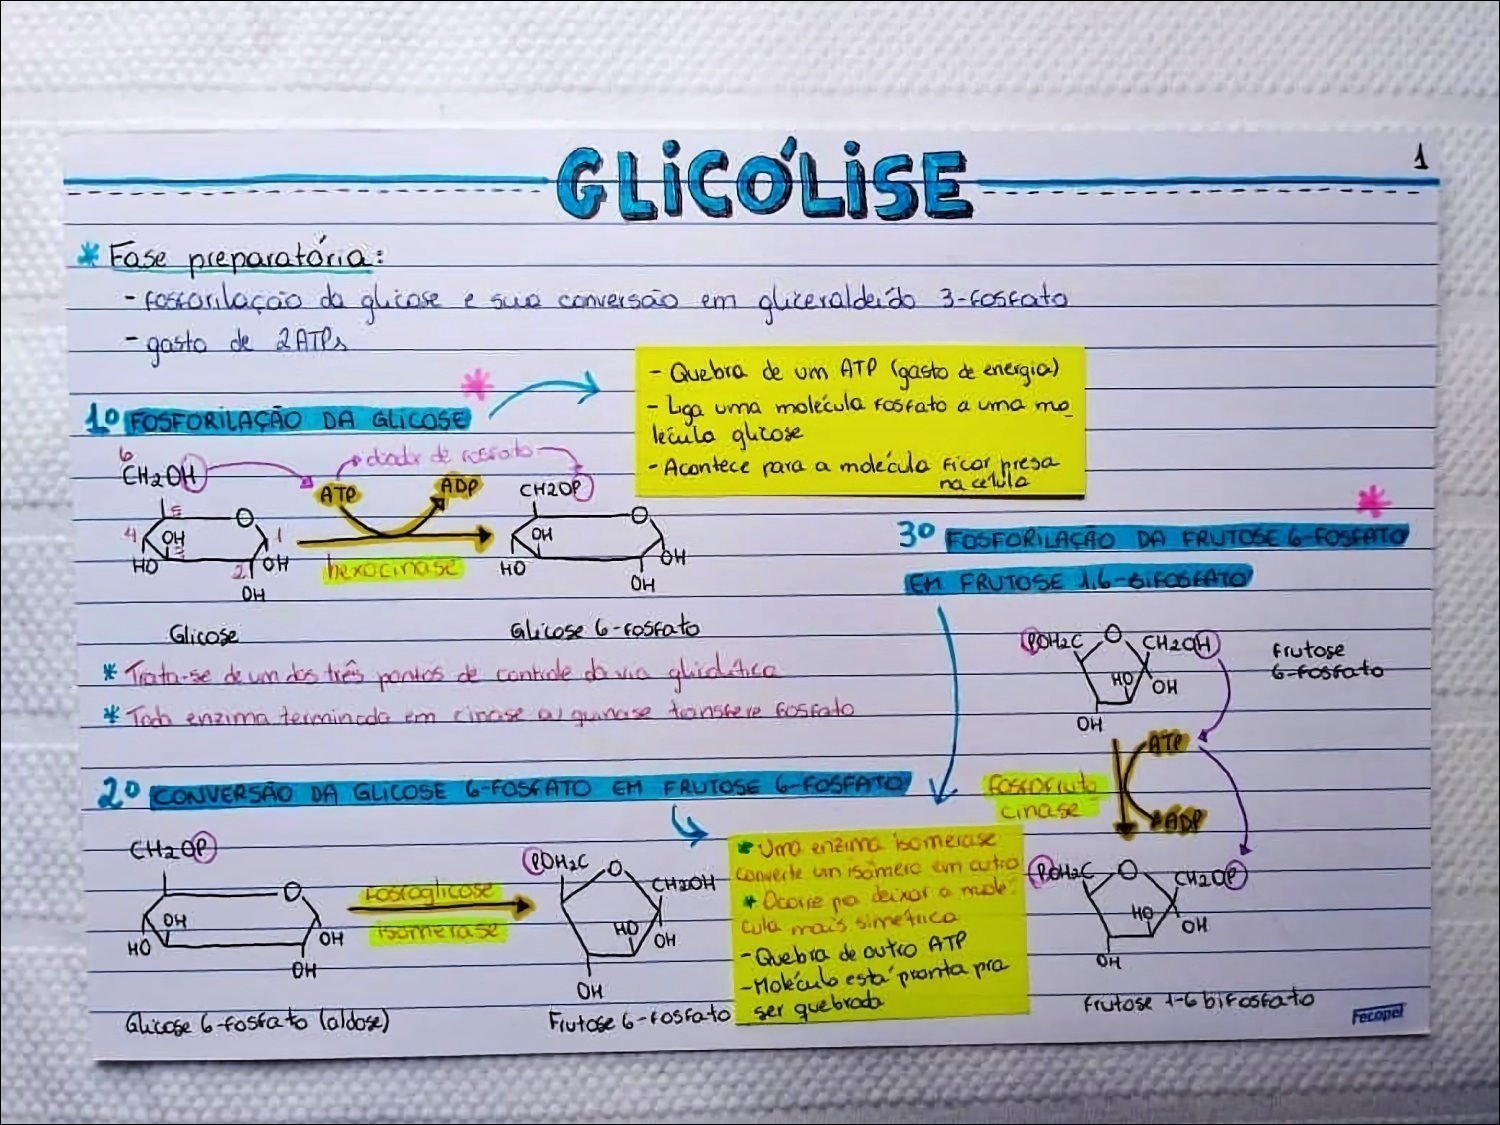 GLICÓLISE
1
* Fase preparatória:
- fosforilação da glicose e sua conversão em gliceraldeído 3-fosfato
- gasto de 2ATPs
- Quebra de um ATP (gasto de energia)
- Liga uma molécula fosfato a uma mo_
lécula glicose
- Acontece para a molécula ficar presa
na célula
1º FOSFORILAÇÃO DA GLICOSE *
6
CH2OH
doador de fosfato
ATP
ADP
CH2OP
5
O
4
OH
3
1
HO
2
OH
OH
hexocinase
O
OH
HO
OH
OH
Glicose
Glicose 6-fosfato
* Trata-se de um dos três pontos de controle da via glicolítica
* Toda enzima terminada em cinase ou quinase transfere fosfato
2º CONVERSÃO DA GLICOSE 6-FOSFATO EM FRUTOSE 6-FOSFATO
CH2OP
O
OH
HO
OH
OH
fosfoglicose
isomerase
POH2C
O
CH2OH
HO
OH
OH
Glicose 6-fosfato (aldose)
Frutose 6-fosfato
* Uma enzima isomerase
converte um isômero em outro
* Ocorre pra deixar a molé-
cula mais simétrica
- Quebra de outro ATP
- Molécula está pronta pra
ser quebrada
*
3º FOSFORILAÇÃO DA FRUTOSE 6-FOSFATO
EM FRUTOSE 1,6-BIFOSFATO
POH2C
O
CH2OH
HO
OH
OH
frutose
6-fosfato
fosfofruto
cinase
ATP
ADP
POH2C
O
CH2OP
HO
OH
OH
frutose 1-6 bifosfato
Fecopel